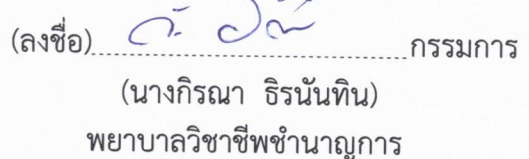 (ลงชื่อ)..............................กรรมการ
(นางกิรณา ธิรนันทิน)
พยาบาลวิชาชีพชำนาญการ